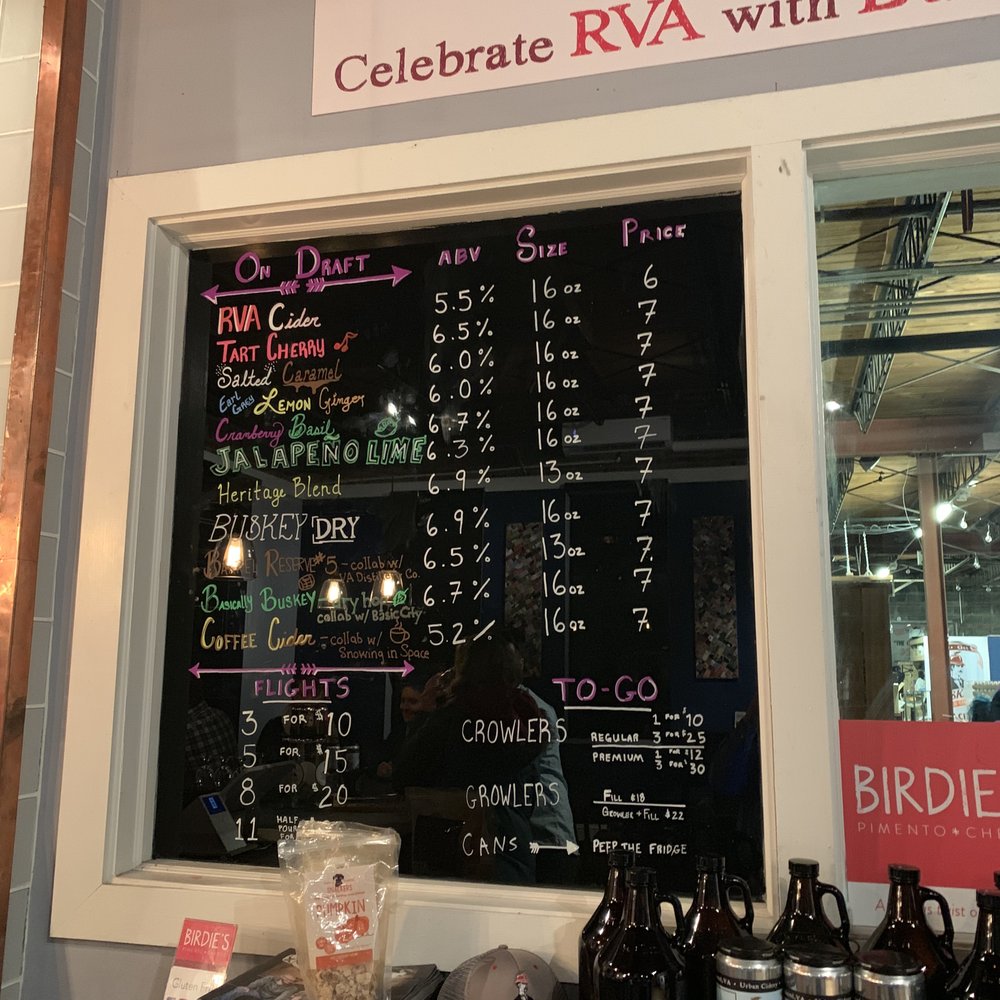 Celebrate RVA with
On Draft ABV Size Price
RVA Cider 5.5% 16oz 6
TART CHERRY 6.5% 16oz 7
Salted Caramel 6.0% 16oz 7
Earl Grey LEMON Ginger 6.0% 16oz 7
Cranberry Basil 6.7% 16oz 7
JALAPEÑO LIME 6.3% 16oz 7
Heritage Blend 6.9% 13oz 7
BUSKEY DRY 6.9% 16oz 7
Barrel Reserve #5 - collab w/ 6.5% 13oz 7
VA Distillery Co.
Basically Buskey 6.7% 16oz 7
collab w/ Basic City
Coffee Cider - collab w/ 5.2% 16oz 7
Snowing in Space
FLIGHTS
3 FOR $10
5 FOR $15
8 FOR $20
11 HALF POUR FOR
TO-GO
CROWLERS REGULAR 1 FOR $10
3 FOR $25
PREMIUM 1 FOR $12
3 FOR $30
GROWLERS FILL $18
GROWLER + FILL $22
CANS PEEP THE FRIDGE
BIRDIE'S
PIMENTO
BIRDIE'S
Gluten
PUMPKIN
Urban Cidery